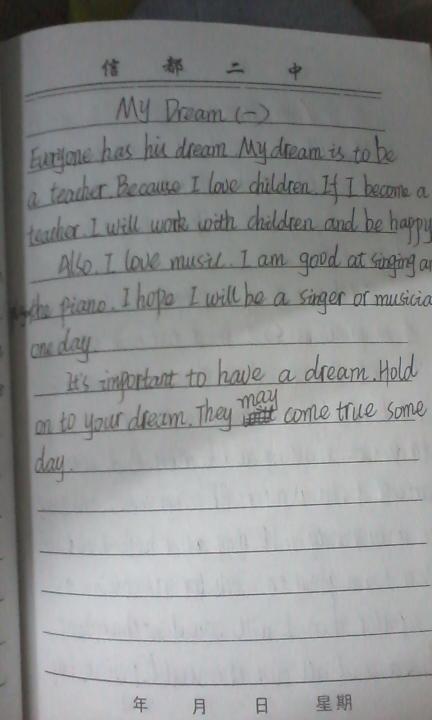 信都二中
My Dream (一)
Euryone has his dream. My dream is to be
a teacher. Because I love children. If I become a
teacher. I will work with children and be happy
Also. I love music. I am good at singing an
the piano. I hope I will be a singer or musicia
one day.
It's important to have a dream. Hold
on to your dream. They may come true some
day.
年 月 日 星期